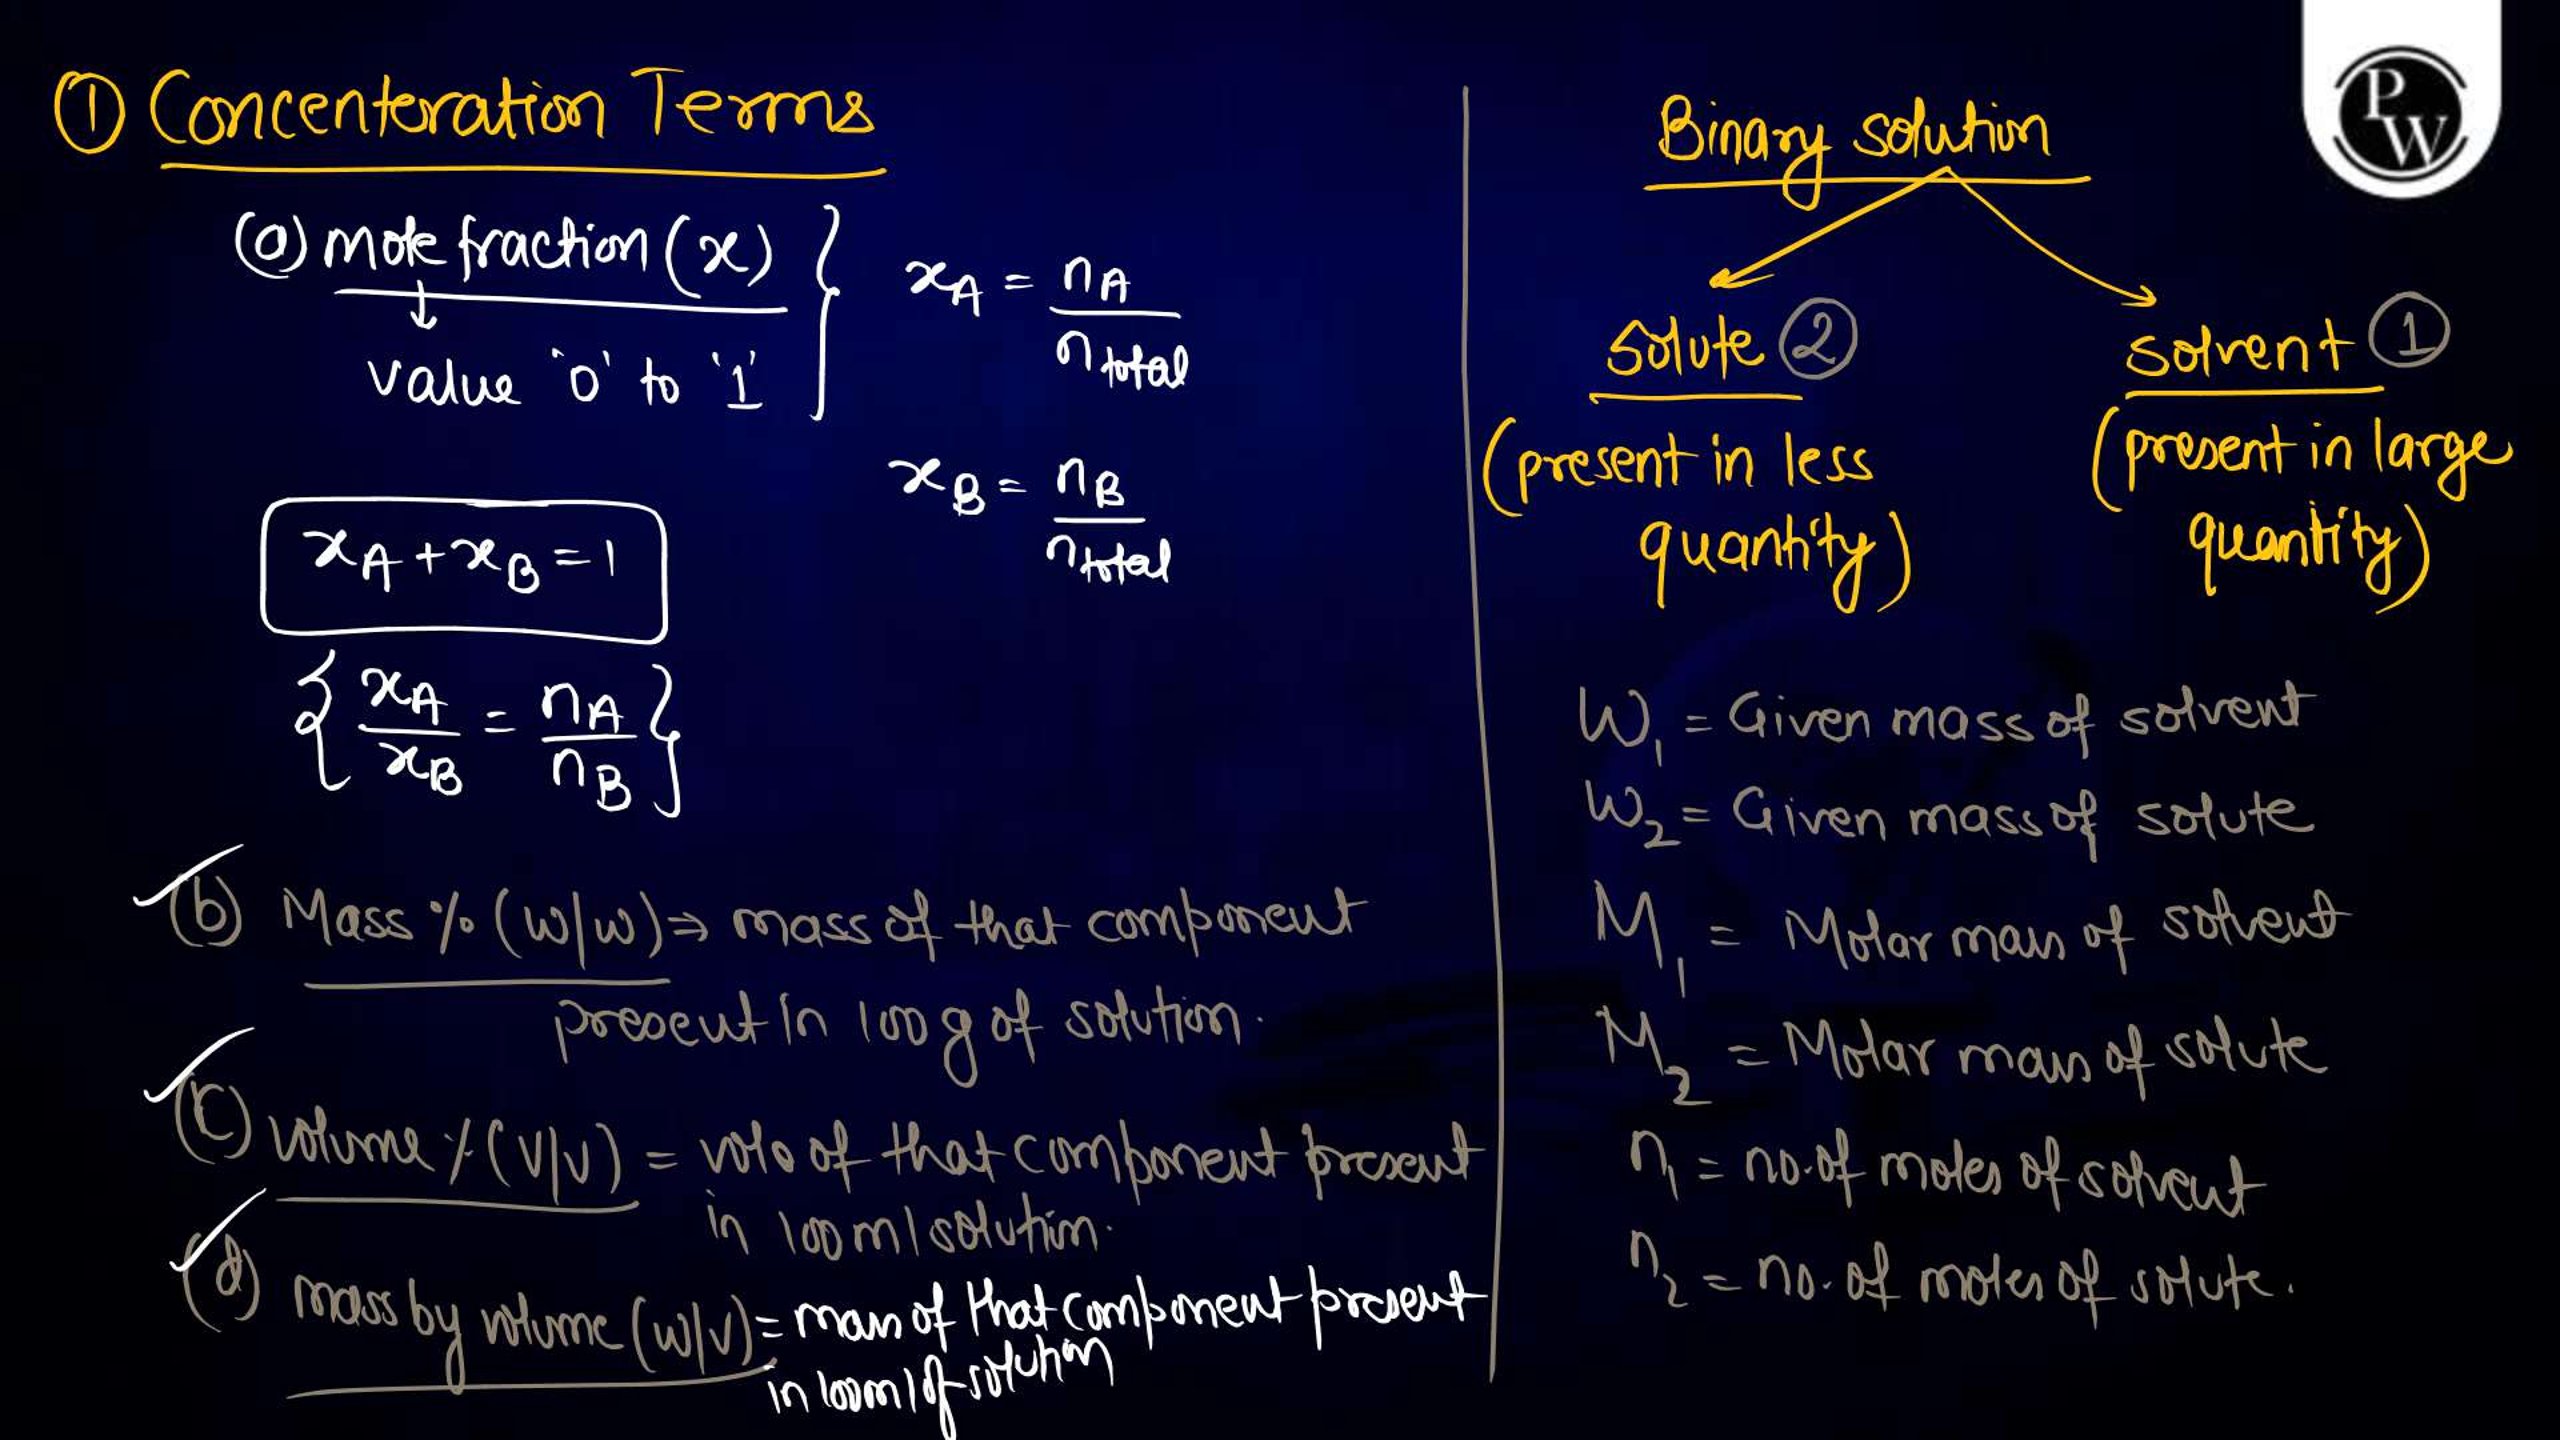 ① Concenteration Terms
(a) mole fraction (x)
value '0' to '1'
xA = nA / ntotal
xB = nB / ntotal
xA + xB = 1
{ xA / xB = nA / nB }
(b) Mass % (w/w) ⇒ mass of that component
present in 100 g of solution.
(c) volume % (v/v) = volo of that component present
in 100 ml solution.
(d) mass by volume (w/v) = mass of that component present
in 100 ml of solution
Binary solution
solute ②
(present in less
quantity)
solvent ①
(present in large
quantity)
W₁ = Given mass of solvent
W₂ = Given mass of solute
M₁ = Molar mass of solvent
M₂ = Molar mass of solute
n₁ = no. of moles of solvent
n₂ = no. of moles of solute.
PW